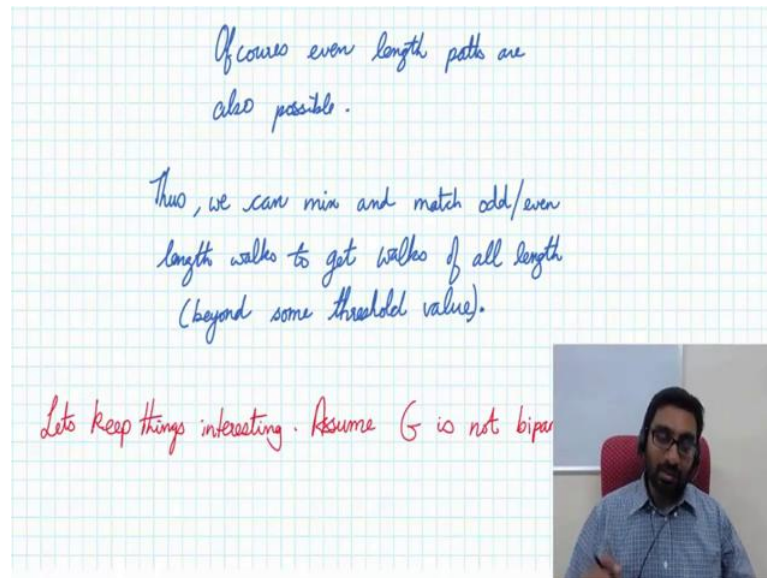 Of coures even length paths are
also possible.
Thus, we can mix and match odd/even
length walks to get walks of all length
(beyond some threshold value).
Lets keep things interesting. Assume G is not bipar